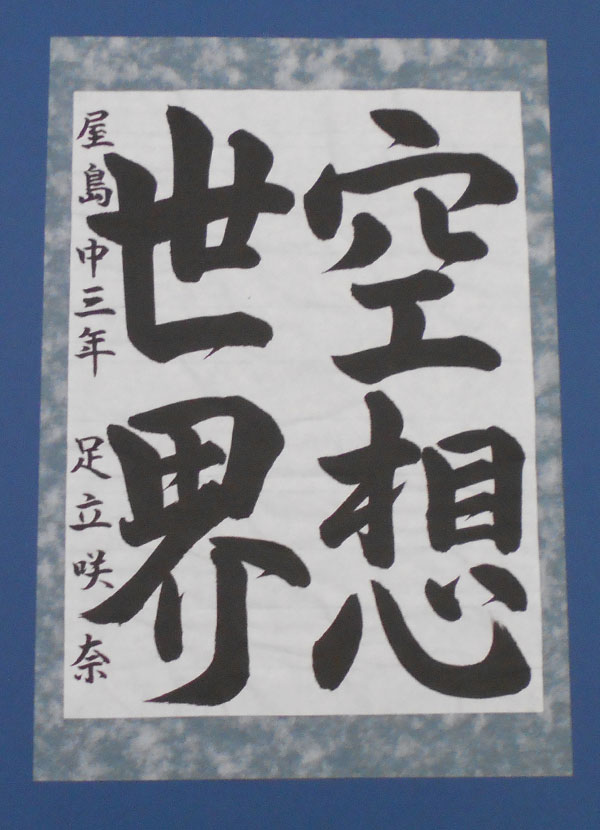 空想
世界
屋島中三年 足立咲奈